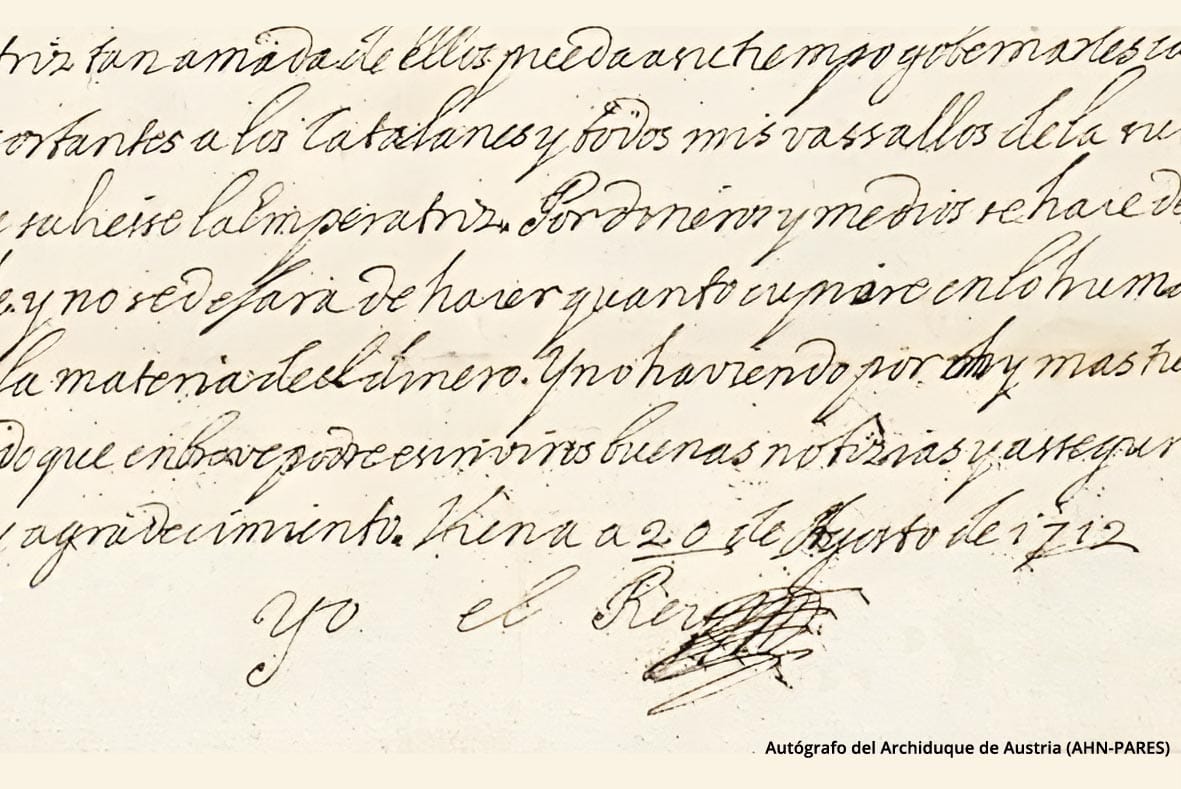 triz tan amada de ellos pueda a su tiempo gobernarles co
ortantes a los Catalanes y todos mis vassallos de la su
saliesse la Emperatriz. Por dineros y medios se hace de
y no se dejara de hacer quanto cupiere en lo huma
la materia de el dinero. Y no haviendo por oy mas tie
do que en breve podre escriviros buenas notizias y assegur
agradecimiento. Viena a 20 de Agosto de 1712
Yo el Rey
Autógrafo del Archiduque de Austria (AHN-PARES)